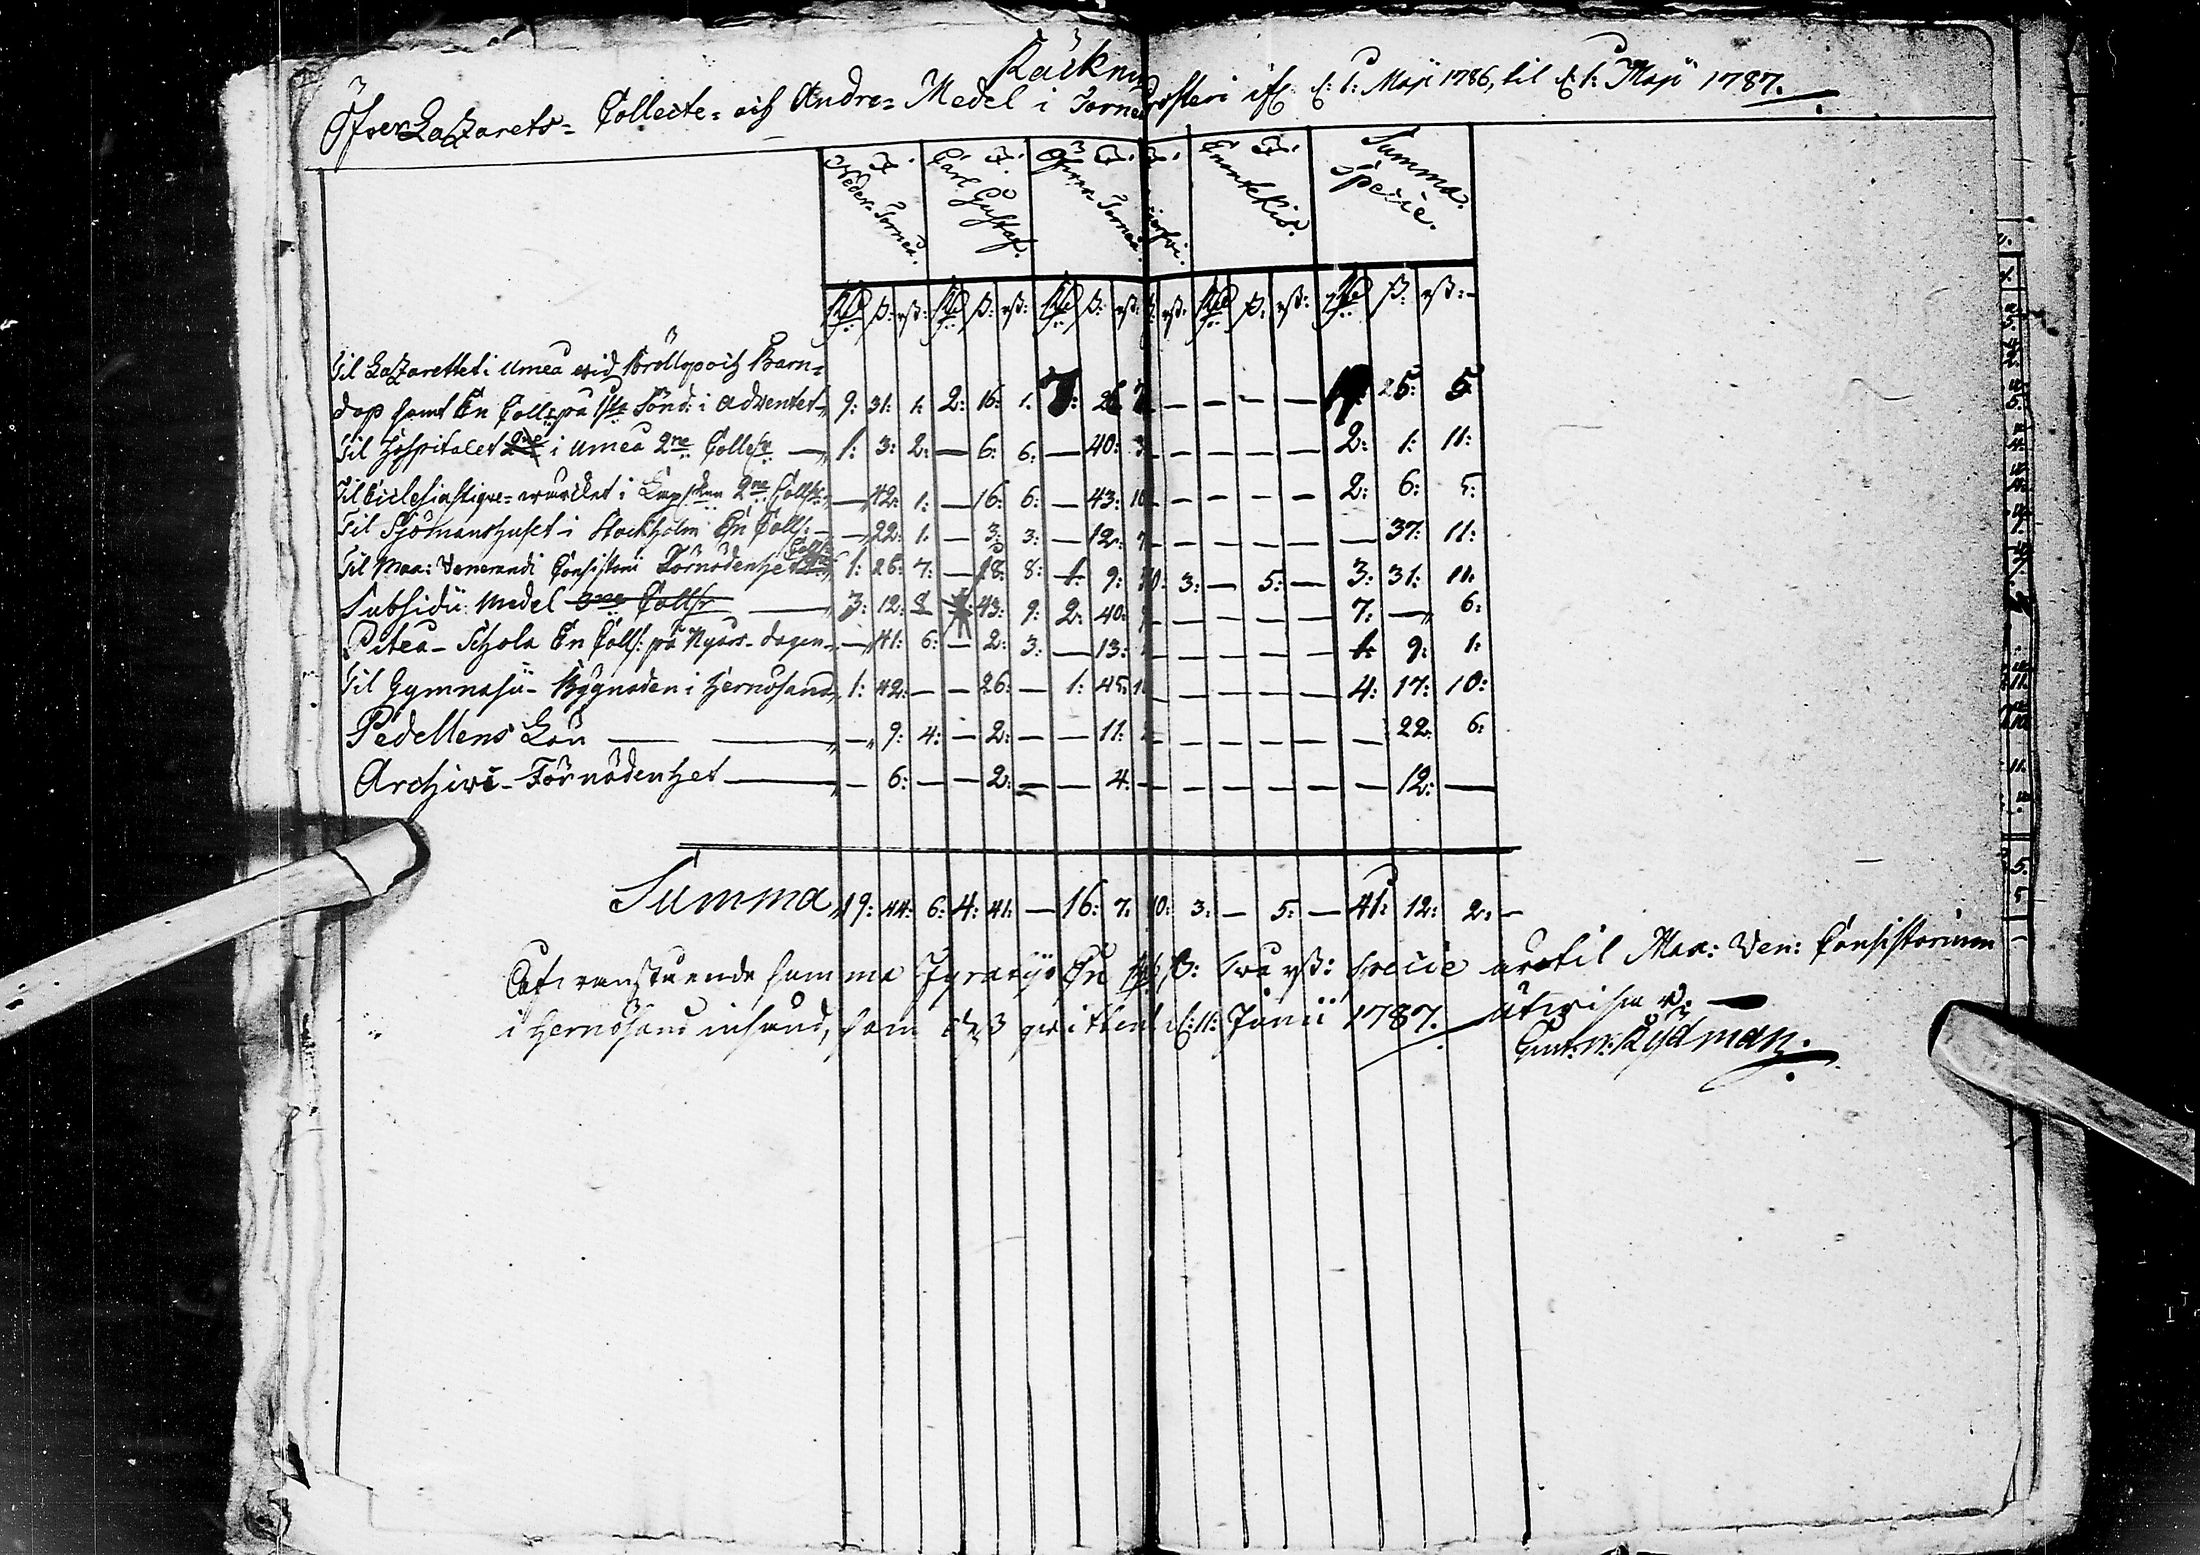 Räkni
Öfver Lazarets- Collecte- och Andra- Medel i Torne prosteri ifr. d: 1: Maji 1786, til d: 1: Maji 1787.
Neder-Torneå. Carl Gustaf. Öfver-Torneå. Enontekis. Summa Specie.
Rd ß: rß: Rd ß: rß: Rd ß: rß: rß: Rd ß: rß: Rd ß: rß:
Til Lazarettet i Umeå vid Bröllop och Barn-
dop samt En Coll: på 1sta Sönd: i Adventet 9: 31: 1: 2: 16: 1: 7: 26 7 — — — — 25: 5
Til Hospitalet i Umeå 2ne Collr — 1: 3: 2: — 6: 6: — 40: 3 — — — — 2: 1: 11:
Til Ecclesiastique- 2ne Collr: — 42: 1: — 16: 6: — 43: 10 — — — — 2: 6: 5:
Til Sjömanshuset i Stockholm En Coll: — 22: 1: — 3: 3: — 12: 7 — — — — — 37: 11:
Til Max: Venerandi Consistorii Förnödenhet 1: 26: 7: — 18: 8: 1: 9: 10: 3: — 5: — 3: 31: 11:
Subsidii Medel 3ne Collr — 3: 12: 8 43: 9: 2: 40: 9 — — — — 7: — 6:
Piteå- Schola En Coll: på Nyårs-dagen — 41: 6: — 2: 3: — 13: — — — — 1: 9: 1:
Til Gymnasii- Bygnaden i Hernösand 1: 42: — — 26: — 1: 45: 1 — — — — 4: 17: 10:
Pedellens Lön — — — 9: 4: — 2: — — 11: — — — — — 22: 6:
Archivi- Förnödenhet — — 6: — — 2: — — 4: — — — — — — 12: —
Summa 19: 44: 6: 4: 41: — 16: 7: 10: 3: — 5: — 41: 12: 2: —
At ofvanstående summa Fyratijo En Rd ß: Två rß: Specie är til Max: Ven: Consistorium
i Hernösand insänd, som qvittent d: 11: Junii 1787. utvisar. —
Rydman.